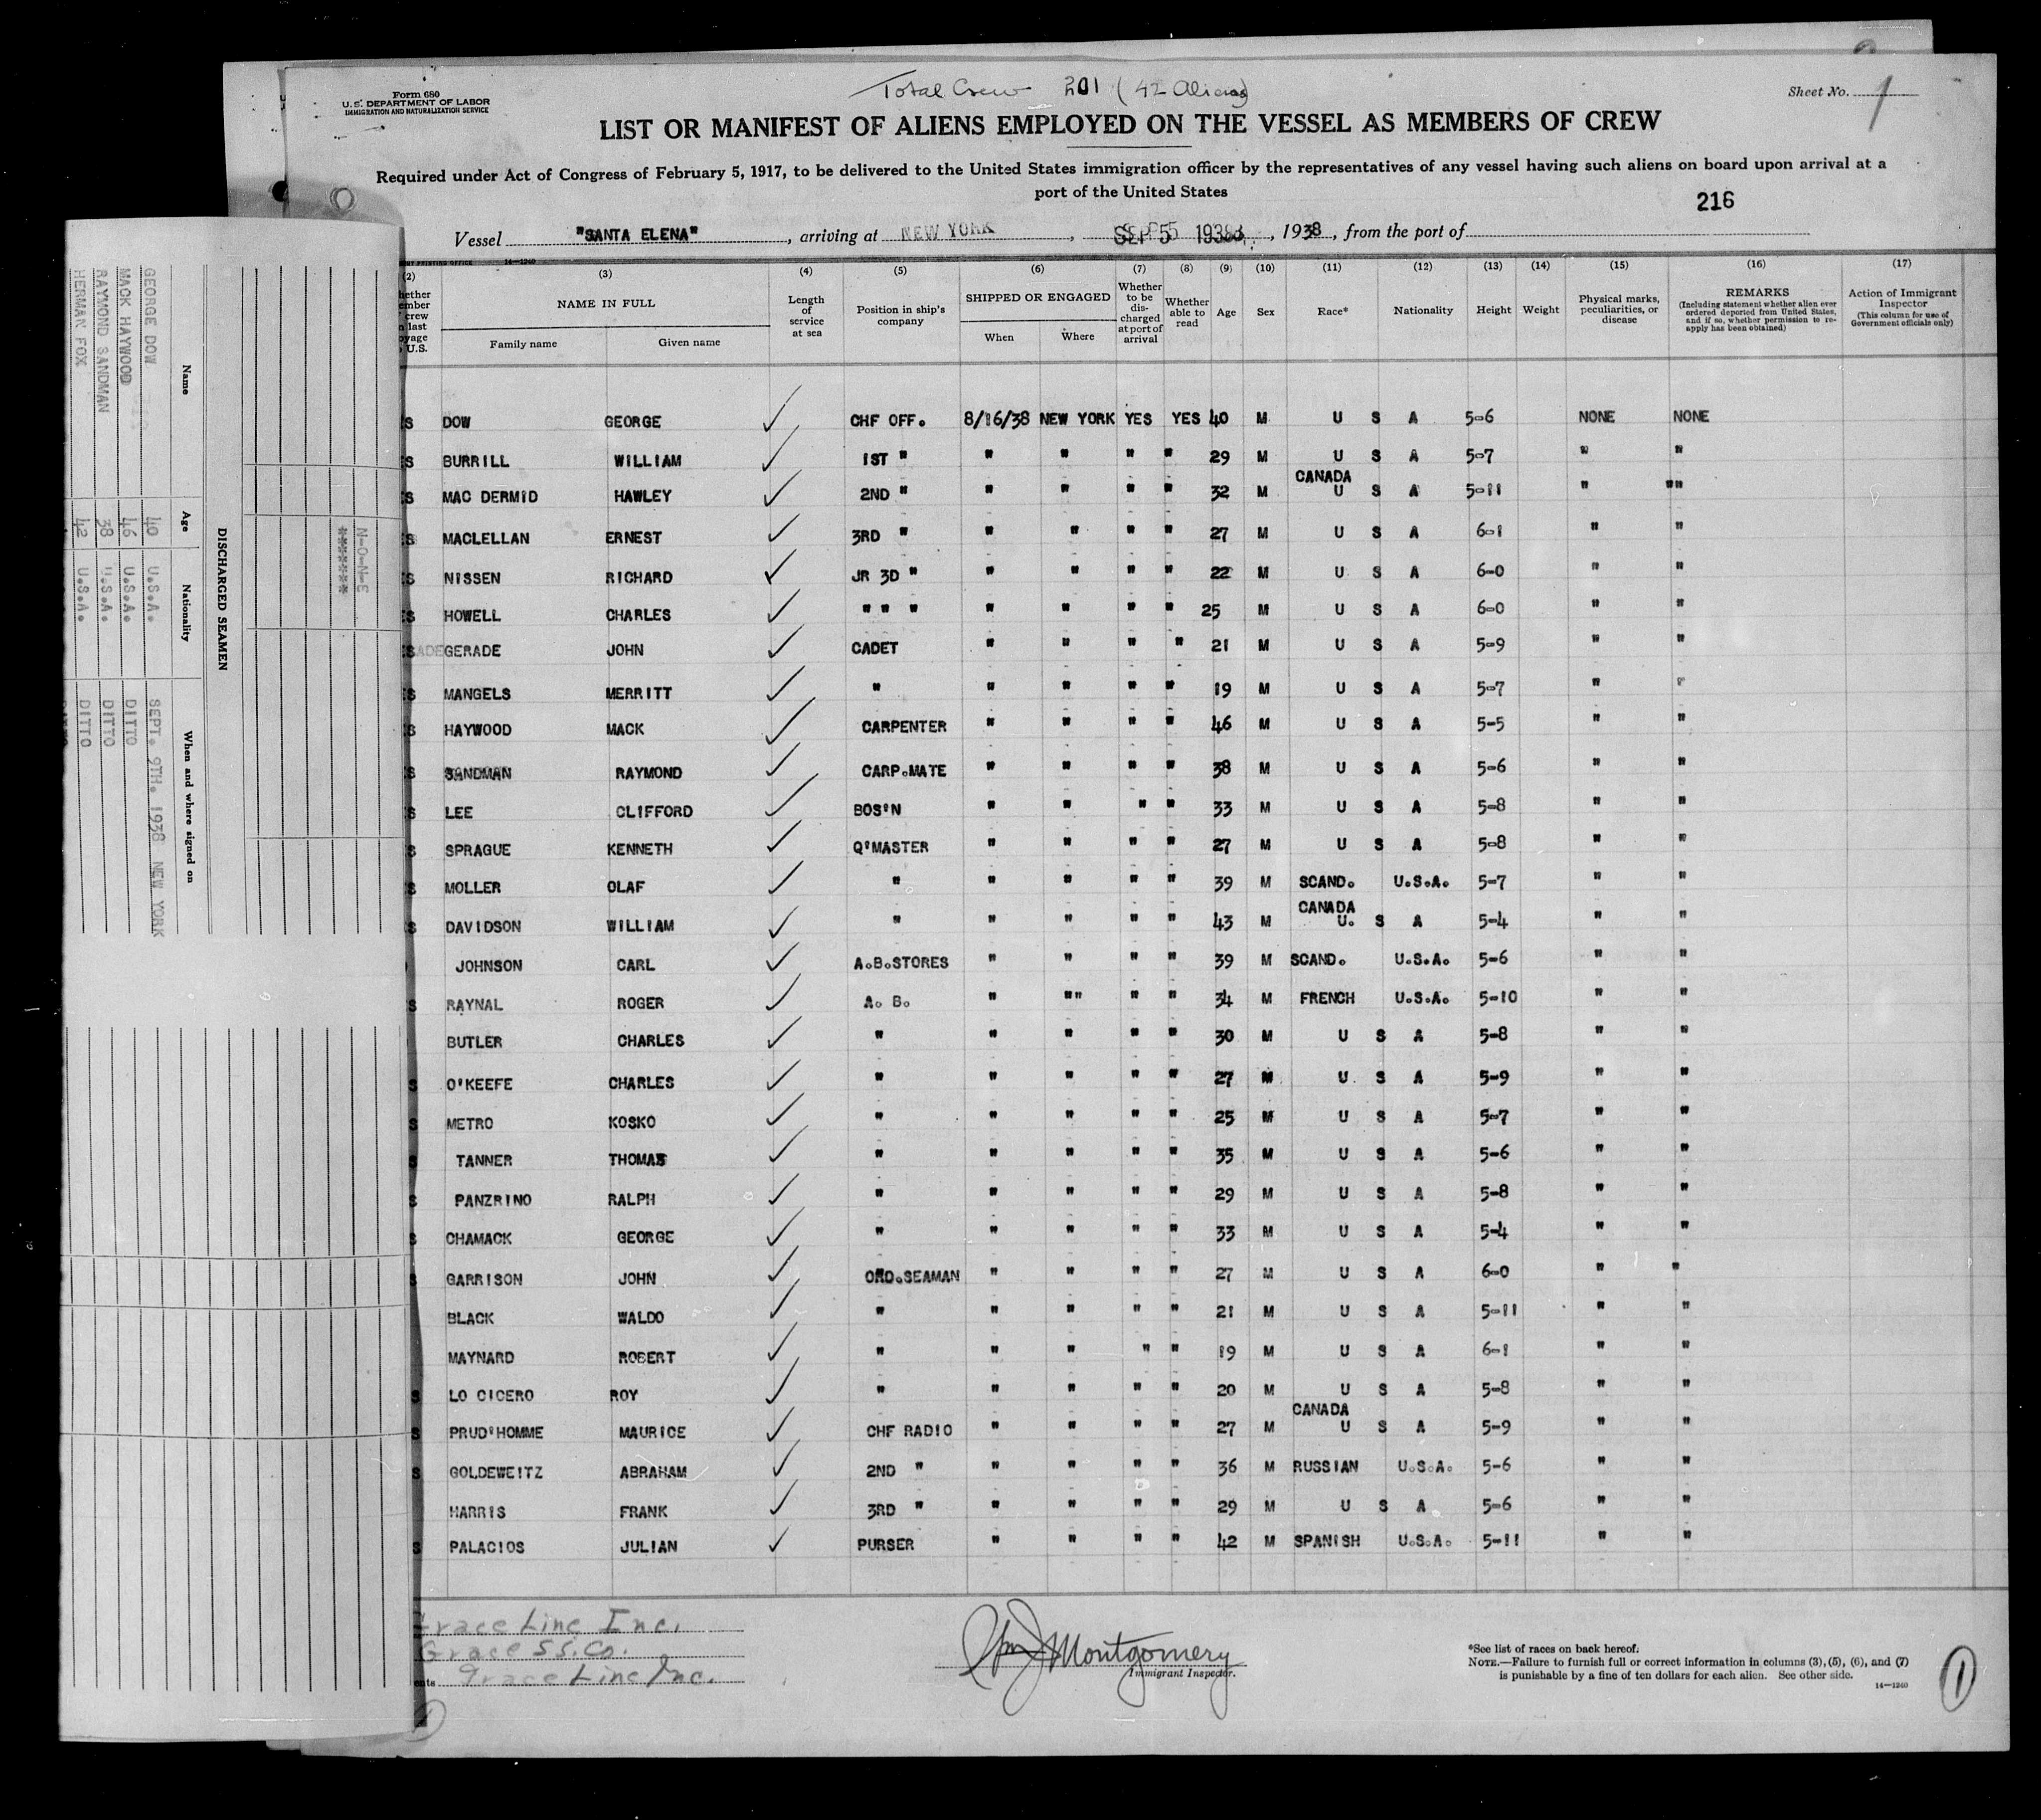 Total Crew 201 (42 Aliens)
Form 680
U.S. DEPARTMENT OF LABOR
IMMIGRATION AND NATURALIZATION SERVICE
Sheet No. 1
LIST OR MANIFEST OF ALIENS EMPLOYED ON THE VESSEL AS MEMBERS OF CREW
Required under Act of Congress of February 5, 1917, to be delivered to the United States immigration officer by the representatives of any vessel having such aliens on board upon arrival at a
port of the United States
216
Vessel "SANTA ELENA", arriving at NEW YORK, SEP 5 1938, 1938, from the port of
14—1240
(2) (3) (4) (5) (6) (7) (8) (9) (10) (11) (12) (13) (14) (15) (16) (17)
NAME IN FULL
Family name Given name
Length of service at sea
Position in ship's company
SHIPPED OR ENGAGED
When Where
Whether to be discharged at port of arrival
Whether able to read
Age Sex Race* Nationality Height Weight
Physical marks, peculiarities, or disease
REMARKS
(Including statement whether alien ever ordered deported from United States, and if so, whether permission to reapply has been obtained)
Action of Immigrant Inspector
(This column for use of Government officials only)
S DOW GEORGE ✓ CHF OFF. 8/16/38 NEW YORK YES YES 40 M U S A 5-6 NONE NONE
S BURRILL WILLIAM ✓ 1ST " " " " " 29 M U S A 5-7 " "
CANADA
S MAC DERMID HAWLEY ✓ 2ND " " " " " 32 M U S A 5-11 " ""
S MACLELLAN ERNEST ✓ 3RD " " " " " 27 M U S A 6-1 " "
S NISSEN RICHARD ✓ JR 3D " " " " " 22 M U S A 6-0 " "
S HOWELL CHARLES ✓ " " " " " " " 25 M U S A 6-0 " "
S GERADE JOHN ✓ CADET " " " " 21 M U S A 5-9 " "
S MANGELS MERRITT ✓ " " " " " 19 M U S A 5-7 " "
S HAYWOOD MACK ✓ CARPENTER " " " " 46 M U S A 5-5 " "
S SANDMAN RAYMOND ✓ CARP.MATE " " " " 38 M U S A 5-6 " "
S LEE CLIFFORD ✓ BOS'N " " " " 33 M U S A 5-8 " "
S SPRAGUE KENNETH ✓ Q'MASTER " " " " 27 M U S A 5-8 " "
S MOLLER OLAF ✓ " " " " " 39 M SCAND. U.S.A. 5-7 " "
CANADA
S DAVIDSON WILLIAM ✓ " " " " " 43 M U. S A 5-4 " "
JOHNSON CARL ✓ A.B.STORES " " " " 39 M SCAND. U.S.A. 5-6 " "
S RAYNAL ROGER ✓ A. B. " "" " " 34 M FRENCH U.S.A. 5-10 " "
BUTLER CHARLES ✓ " " " " " 30 M U S A 5-8 " "
S O'KEEFE CHARLES ✓ " " " " " 27 M U S A 5-9 " "
S METRO KOSKO ✓ " " " " " 25 M U S A 5-7 " "
S TANNER THOMAS ✓ " " " " " 35 M U S A 5-6 " "
S PANZRINO RALPH ✓ " " " " " 29 M U S A 5-8 " "
S CHAMACK GEORGE ✓ " " " " " 33 M U S A 5-4 " "
S GARRISON JOHN ✓ ORD.SEAMAN " " " " 27 M U S A 6-0 " "
BLACK WALDO ✓ " " " " " 21 M U S A 5-11 " "
MAYNARD ROBERT ✓ " " " " " 19 M U S A 6-1 " "
S LO CICERO ROY ✓ " " " " " 20 M U S A 5-8 " "
CANADA
S PRUD'HOMME MAURICE ✓ CHF RADIO " " " " 27 M U S A 5-9 " "
S GOLDEWEITZ ABRAHAM ✓ 2ND " " " " " 36 M RUSSIAN U.S.A. 5-6 " "
HARRIS FRANK ✓ 3RD " " " " " 29 M U S A 5-6 " "
S PALACIOS JULIAN ✓ PURSER " " " " 42 M SPANISH U.S.A. 5-11 " "
Grace Line Inc.
Grace SS.Co.
Grace Line Inc.
Wm J Montgomery
Immigrant Inspector.
*See list of races on back hereof.
NOTE.—Failure to furnish full or correct information in columns (3), (5), (6), and (7)
is punishable by a fine of ten dollars for each alien. See other side.
14—1240
1
DISCHARGED SEAMEN
Name Age Nationality When and where signed on
GEORGE DOW 40 U.S.A. SEPT. 9TH. 1938 NEW YORK
MACK HAYWOOD 46 U.S.A. DITTO
RAYMOND SANDMAN 38 U.S.A. DITTO
HERMAN FOX 42 U.S.A. DITTO
N-O-N-E
*******